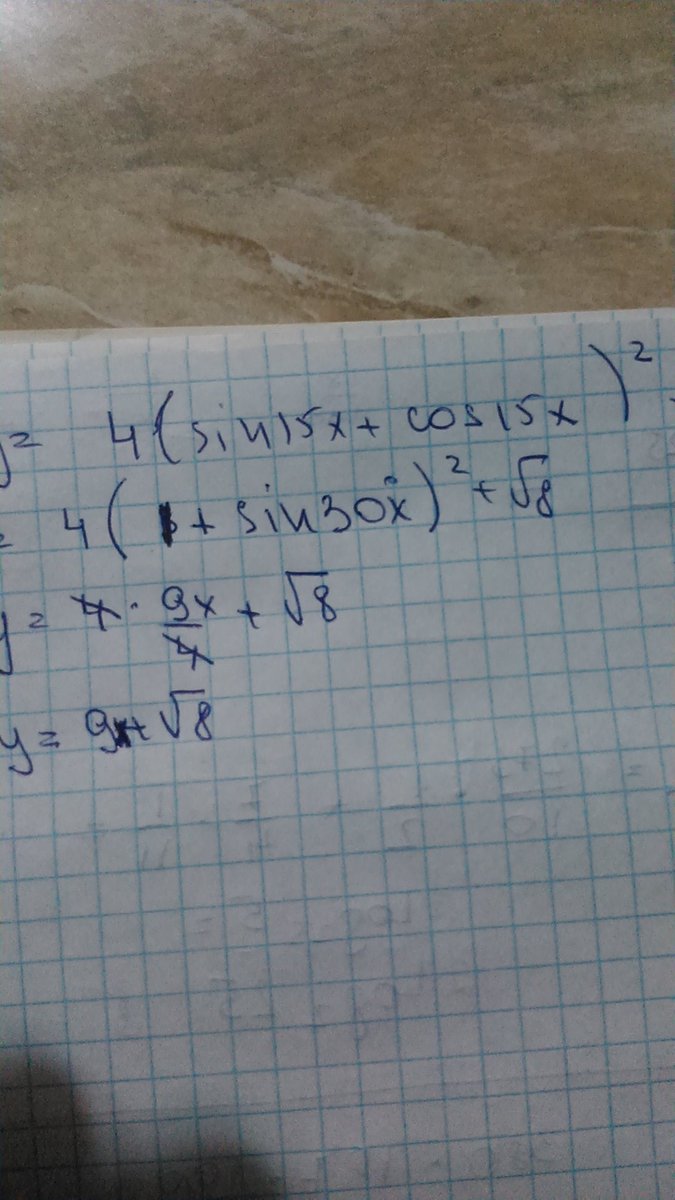 y = 4(sin15x + cos15x)²
= 4(1 + sin30°x)² + √8
y = 4 · 9x/4 + √8
y = 9x + √8